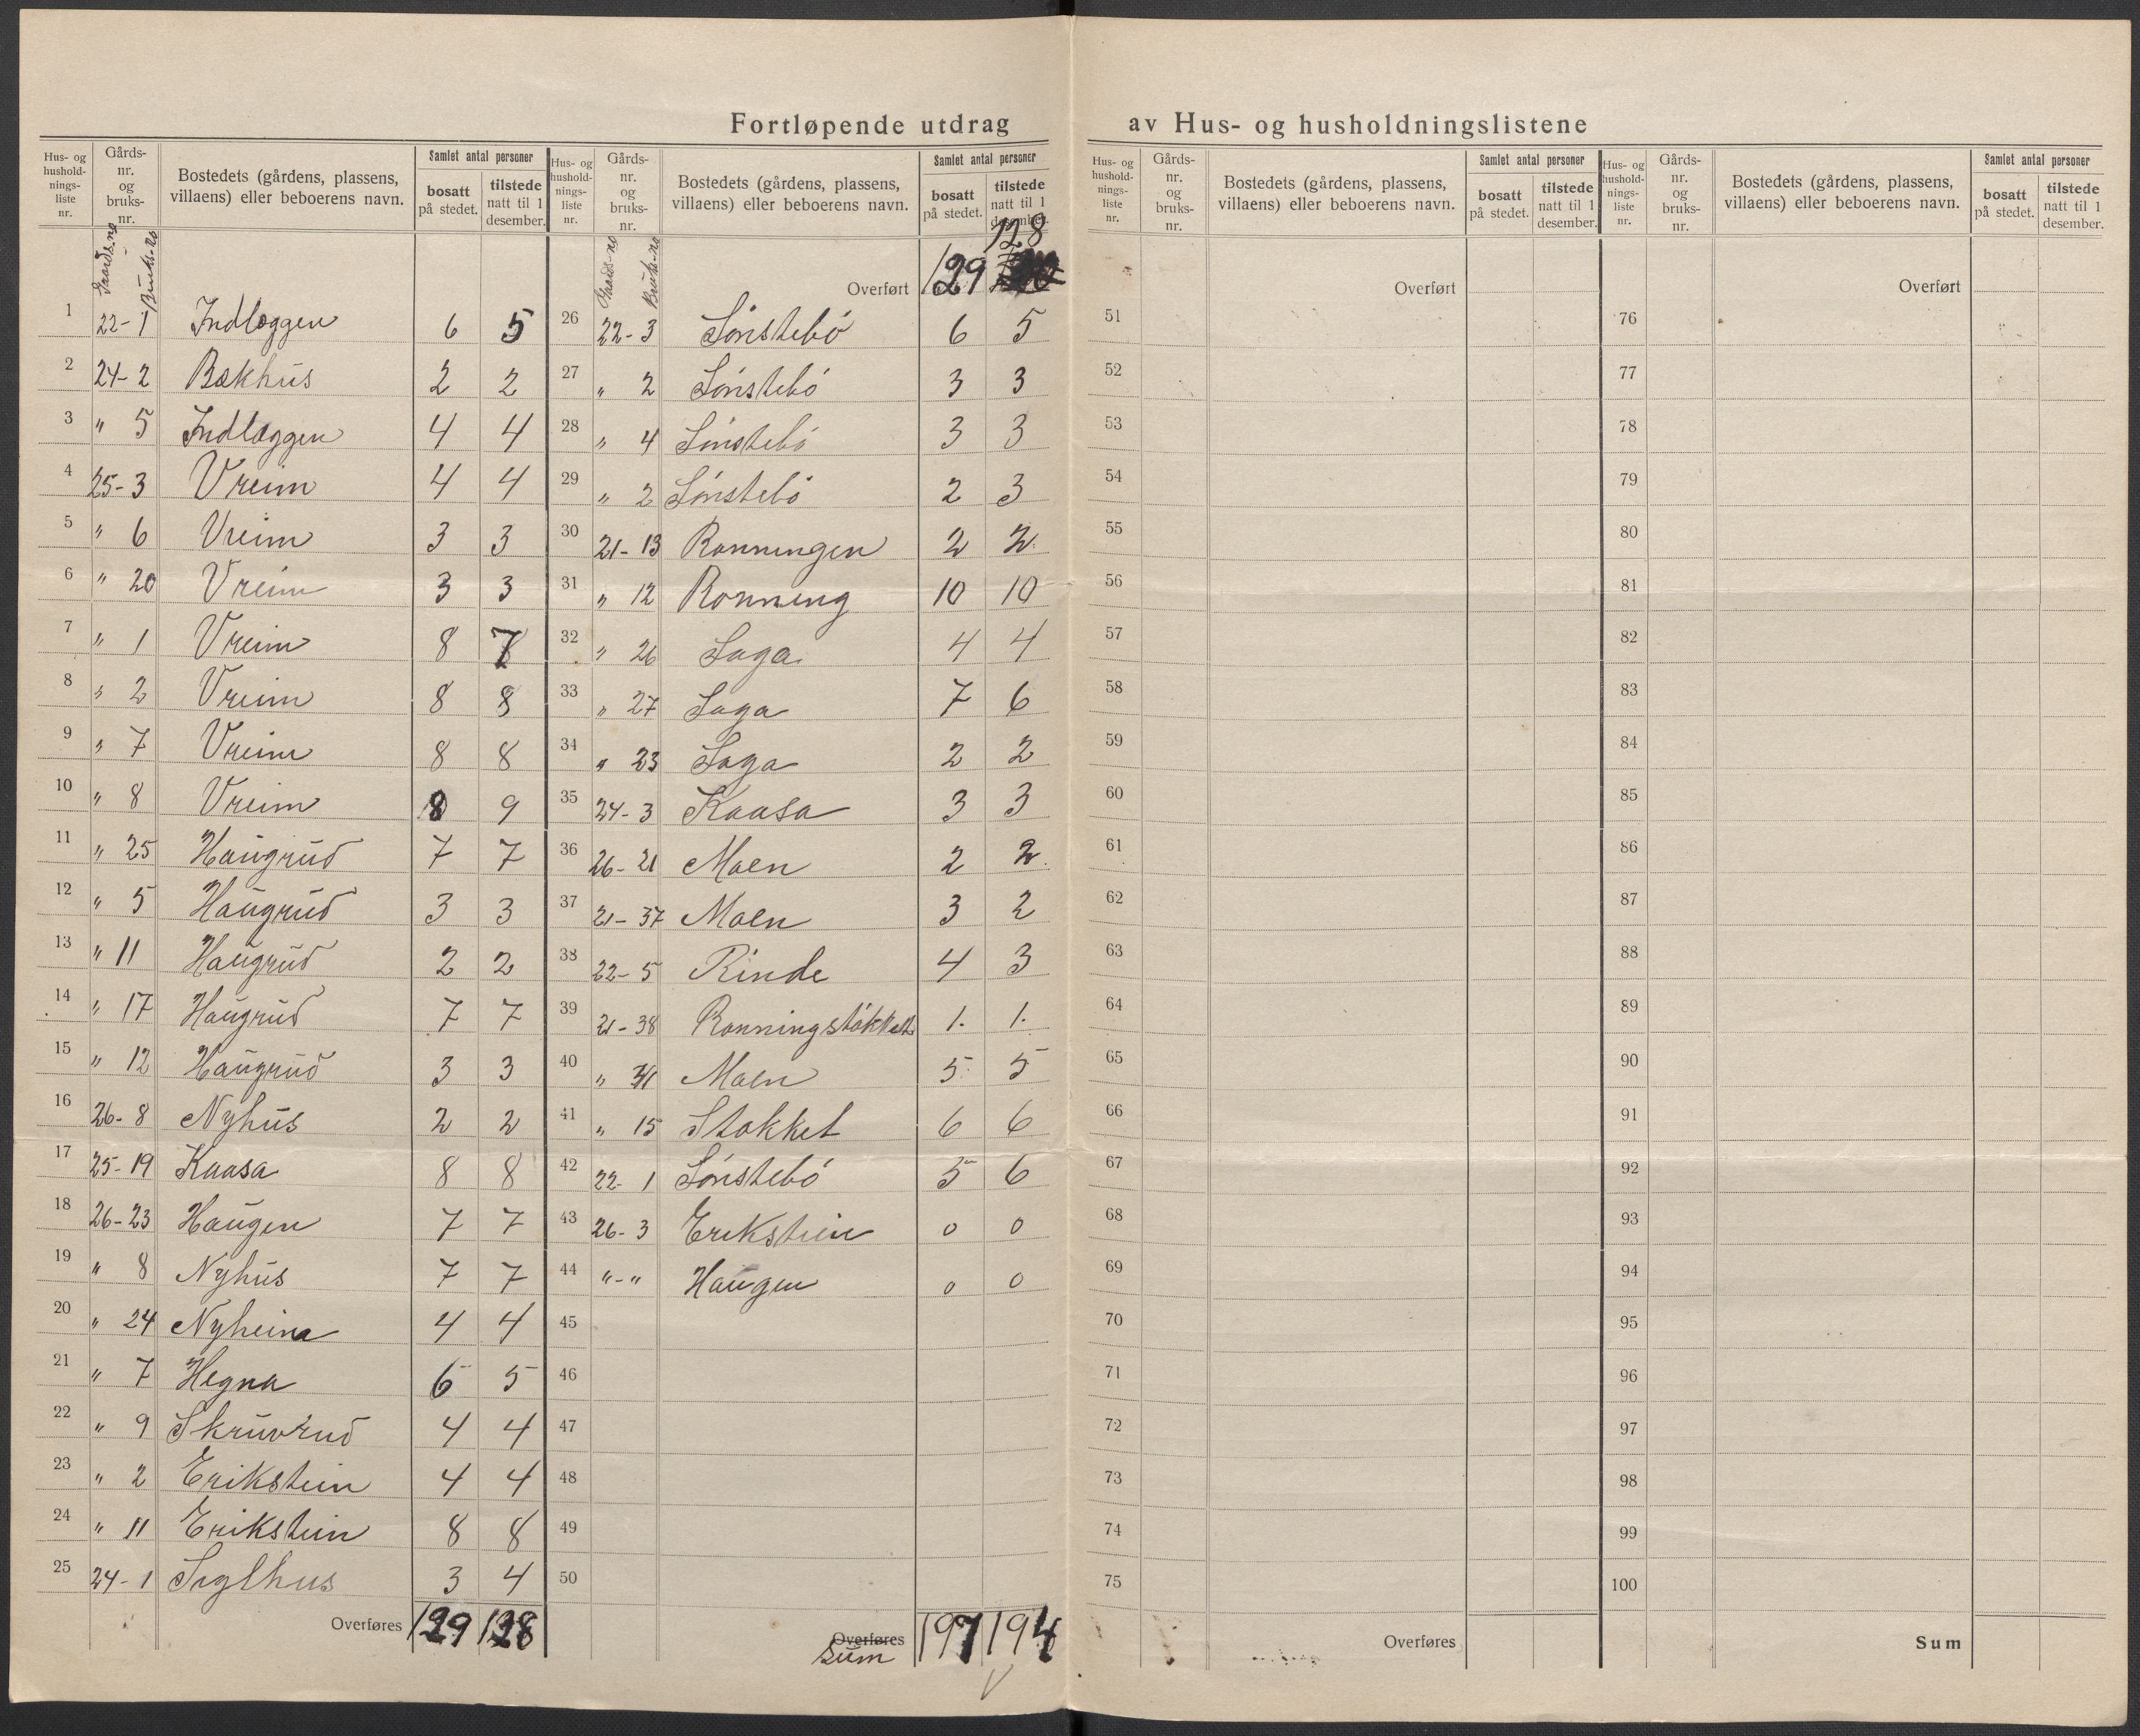 Fortløpende utdrag av Hus- og husholdningslistene
Hus- og hushold-nings-liste nr. Gårds-nr. og bruks-nr. Bostedets (gårdens, plassens, villaens) eller beboerens navn. Samlet antal personer bosatt på stedet. tilstede natt til 1 desember.
Gaards-no Bruks-no
1 22-1 Indlæggen 6 5
2 24-2 Bækhus 2 2
3 " 5 Indlæggen 4 4
4 25-3 Vreim 4 4
5 " 6 Vreim 3 3
6 " 20 Vreim 3 3
7 " 1 Vreim 8 7
8 " 2 Vreim 8 8
9 " 7 Vreim 8 8
10 " 8 Vreim 8 9
11 " 25 Haugrud 7 7
12 " 5 Haugrud 3 3
13 " 11 Haugrud 2 2
14 " 17 Haugrud 7 7
15 " 12 Haugrud 3 3
16 26-8 Nyhus 2 2
17 25-19 Kaasa 8 8
18 26-23 Haugen 7 7
19 " 8 Nyhus 7 7
20 " 24 Nyheim 4 4
21 " 7 Hegna 6 5
22 " 9 Skruvrud 4 4
23 " 2 Erikstein 4 4
24 " 11 Erikstein 8 8
25 24-1 Siglhus 3 4
Overføres 129 128
Hus- og hushold-nings-liste nr. Gårds-nr. og bruks-nr. Bostedets (gårdens, plassens, villaens) eller beboerens navn. Samlet antal personer bosatt på stedet. tilstede natt til 1 desember.
Gaards-no Bruks-no
Overført 129 128
26 22-3 Lønstebö 6 5
27 " 2 Lönstebö 3 3
28 " 4 Lönstebö 3 3
29 " 2 Lönstebö 2 3
30 21-13 Ronningen 2 2
31 " 12 Ronning 10 10
32 " 26 Laga 4 4
33 " 27 Laga 7 6
34 " 23 Laga 2 2
35 24-3 Kaasa 3 3
36 26-21 Moen 2 2
37 21-37 Moen 3 2
38 22-5 Rinde 4 3
39 21-38 Ronningstökket 1. 1.
40 " Moen 5 5
41 " 15 Stokket 6 6
42 22-1 Lönstebö 5 6
43 26-3 Erikstein 0 0
44 "-" Haugen 0 0
45
46
47
48
49
50
Overføres
Sum 197 194
Hus- og hushold-nings-liste nr. Gårds-nr. og bruks-nr. Bostedets (gårdens, plassens, villaens) eller beboerens navn. Samlet antal personer bosatt på stedet. tilstede natt til 1 desember.
Overført
51
52
53
54
55
56
57
58
59
60
61
62
63
64
65
66
67
68
69
70
71
72
73
74
75
Overføres
Hus- og hushold-nings-liste nr. Gårds-nr. og bruks-nr. Bostedets (gårdens, plassens, villaens) eller beboerens navn. Samlet antal personer bosatt på stedet. tilstede natt til 1 desember.
Overført
76
77
78
79
80
81
82
83
84
85
86
87
88
89
90
91
92
93
94
95
96
97
98
99
100
Sum